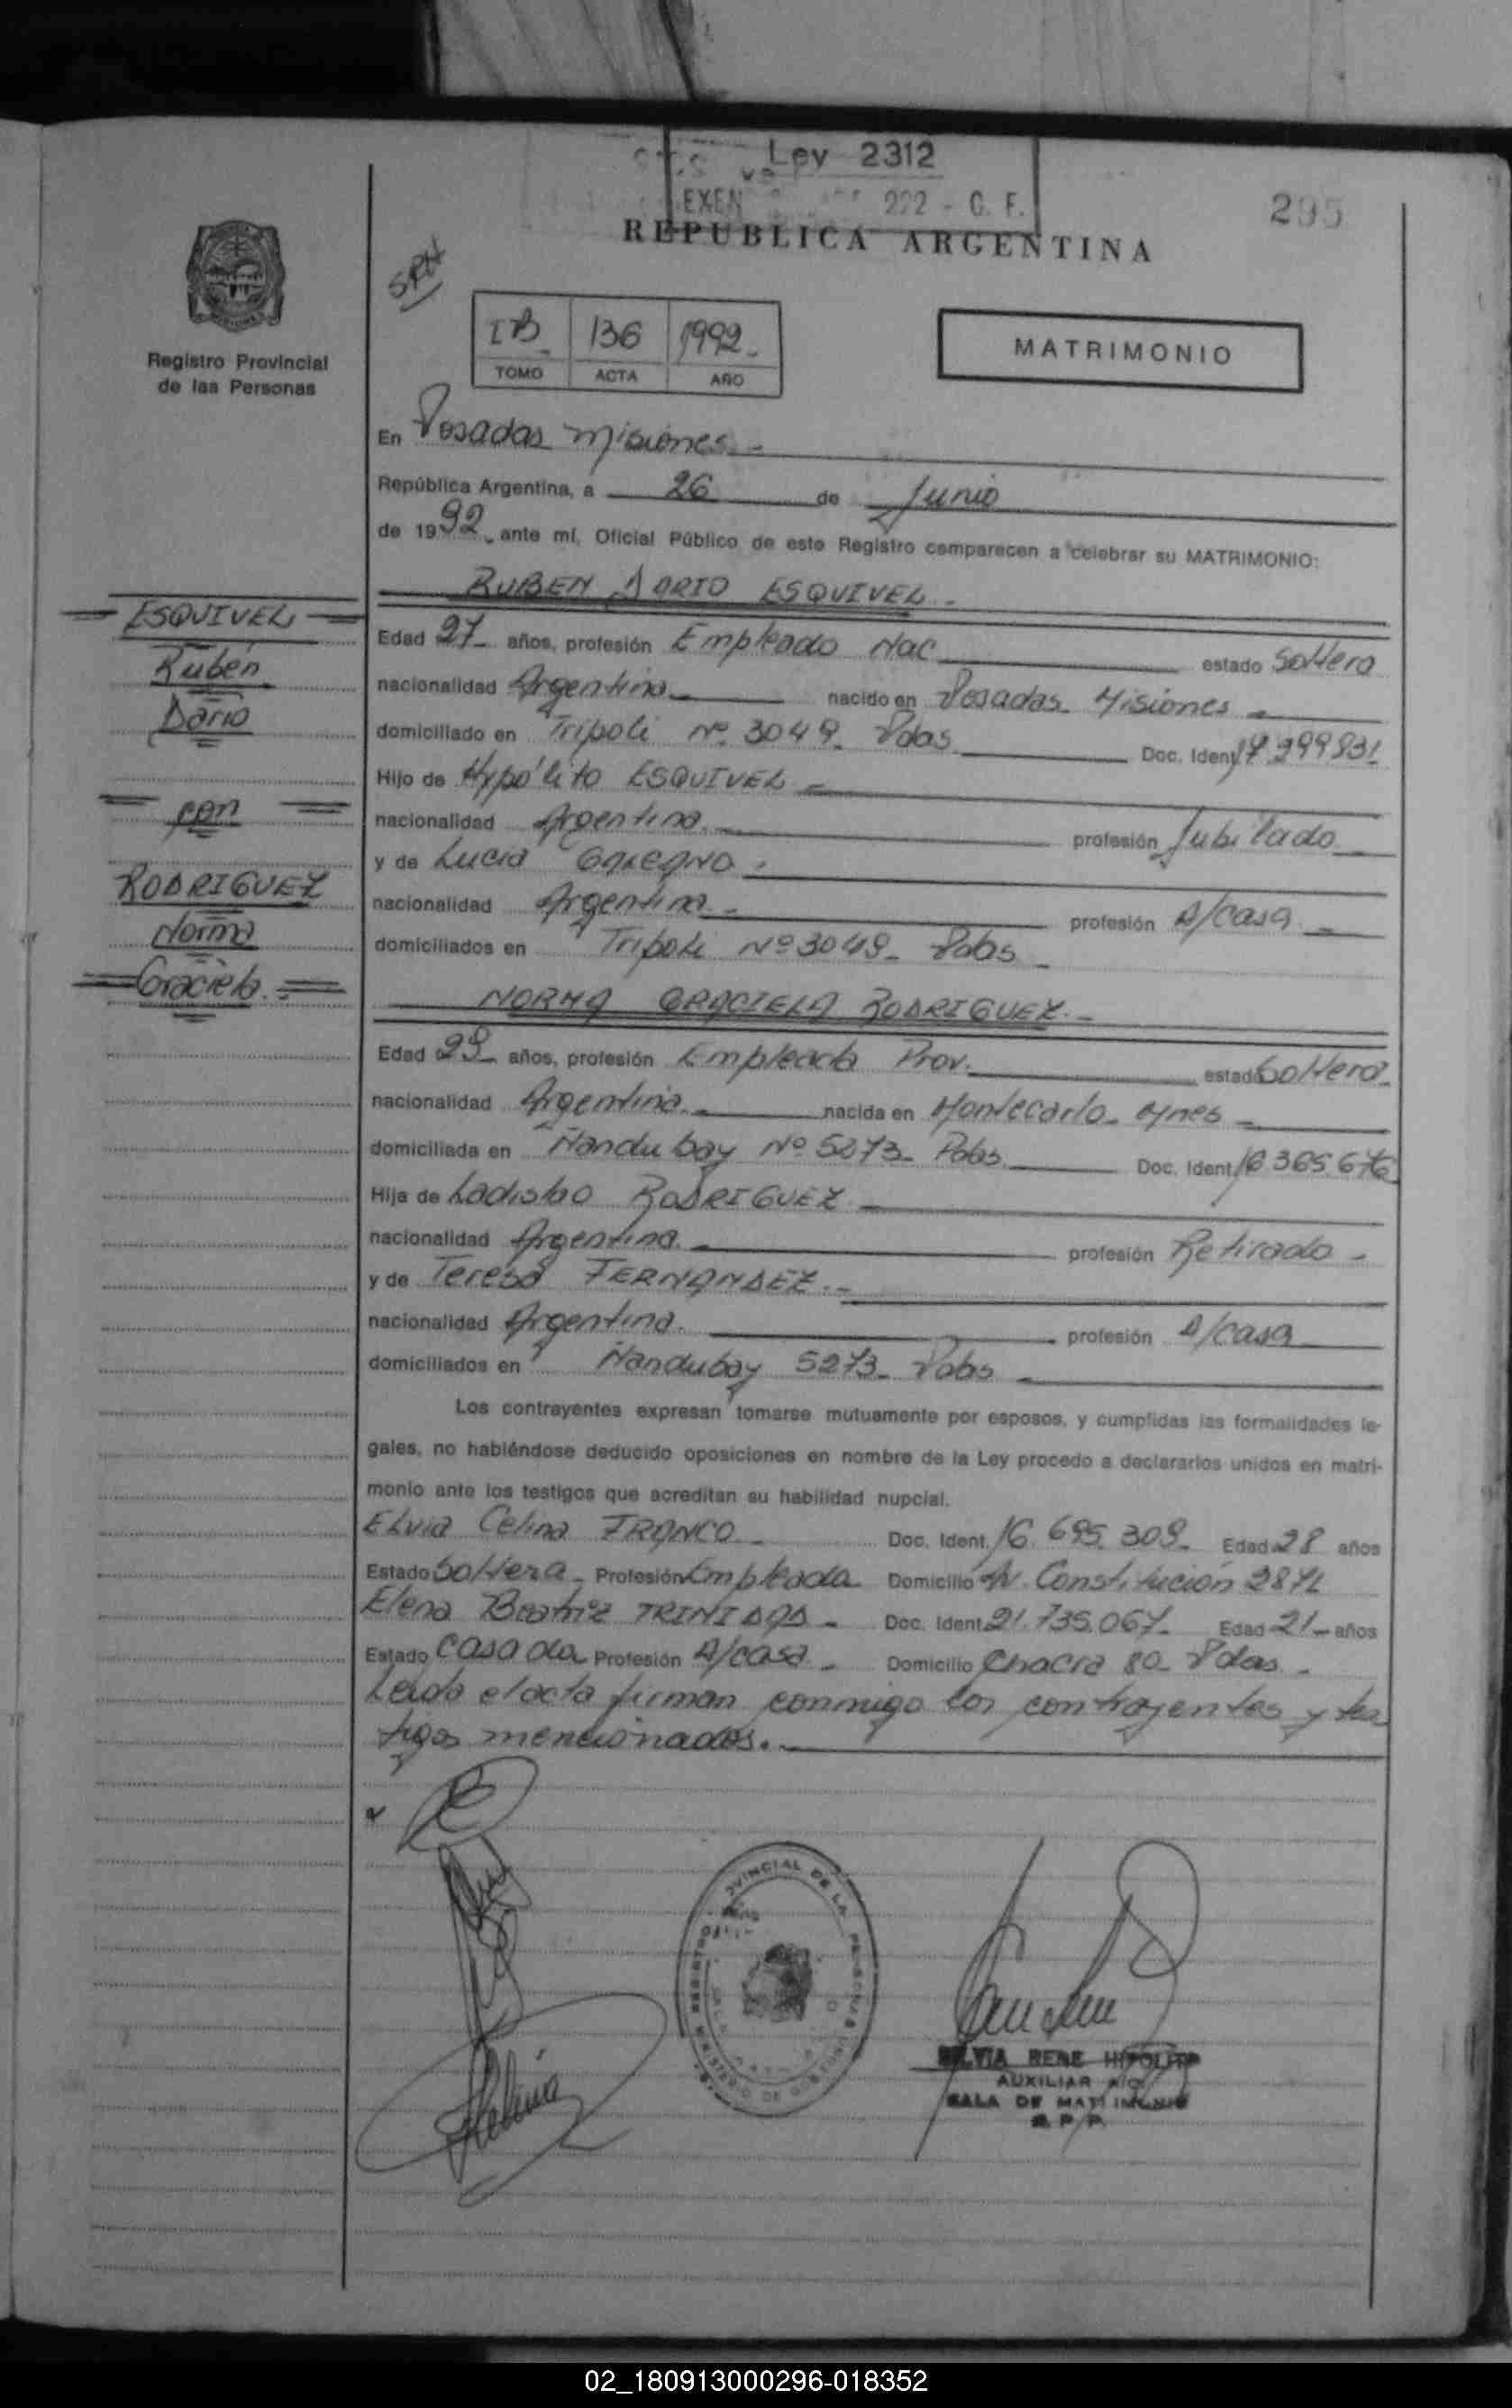 Ley 2312
EXEN 222 - C. F.
295
REPUBLICA ARGENTINA
Registro Provincial
de las Personas
136 1992.-
TOMO ACTA AÑO
MATRIMONIO
En Posadas Misiones.-
República Argentina, a 26 de Junio
de 1992, ante mí, Oficial Público de este Registro comparecen a celebrar su MATRIMONIO:
RUBEN DARIO ESQUIVEL.-
ESQUIVEL
Rubén
Dario
con
RODRIGUEZ
Norma
Graciela.-
Edad 27 años, profesión Empleado Nac estado Soltero
nacionalidad Argentina nacido en Posadas Misiones -
domiciliado en Tripoli Nº 3049. Pdas Doc. Ident. 17.299931
Hijo de Hypólito ESQUIVEL -
nacionalidad Argentina. profesión Jubilado
y de Lucia
nacionalidad Argentina.- profesión A/casa -
domiciliados en Tripoli Nº 3049- Pdas -
NORMA GRACIELA RODRIGUEZ.-
Edad 29 años, profesión Empleada Prov. estado Soltera.
nacionalidad Argentina.- nacida en Montecarlo- Mnes -
domiciliada en Ñandubay Nº 5273- Pdas Doc. Ident. 16365.676
Hija de Ladislao RODRIGUEZ -
nacionalidad Argentina. profesión Retirado -
y de Teresa FERNANDEZ.-
nacionalidad Argentina. profesión A/casa
domiciliados en Ñandubay 5273- Pdas -
Los contrayentes expresan tomarse mutuamente por esposos, y cumplidas las formalidades le-
gales, no habiéndose deducido oposiciones en nombre de la Ley procedo a declararlos unidos en matri-
monio ante los testigos que acreditan su habilidad nupcial.
Elvia Celina FRANCO - Doc. Ident. 16.695.309- Edad 28 años
Estado Soltera- Profesión Empleada Domicilio Av. Constitución 2871
Elena Beatriz TRINIDAD - Doc. Ident. 21.735.067- Edad 21- años
Estado Casada Profesión A/casa - Domicilio Chacra 80- Pdas -
Leida el acta firman conmigo los contrayentes y tes
tigos mencionados.-
SILVIA RENE HIPOLITO
AUXILIAR A/C
SALA DE MATRIMONIO
R. P. P.
02_180913000296-018352